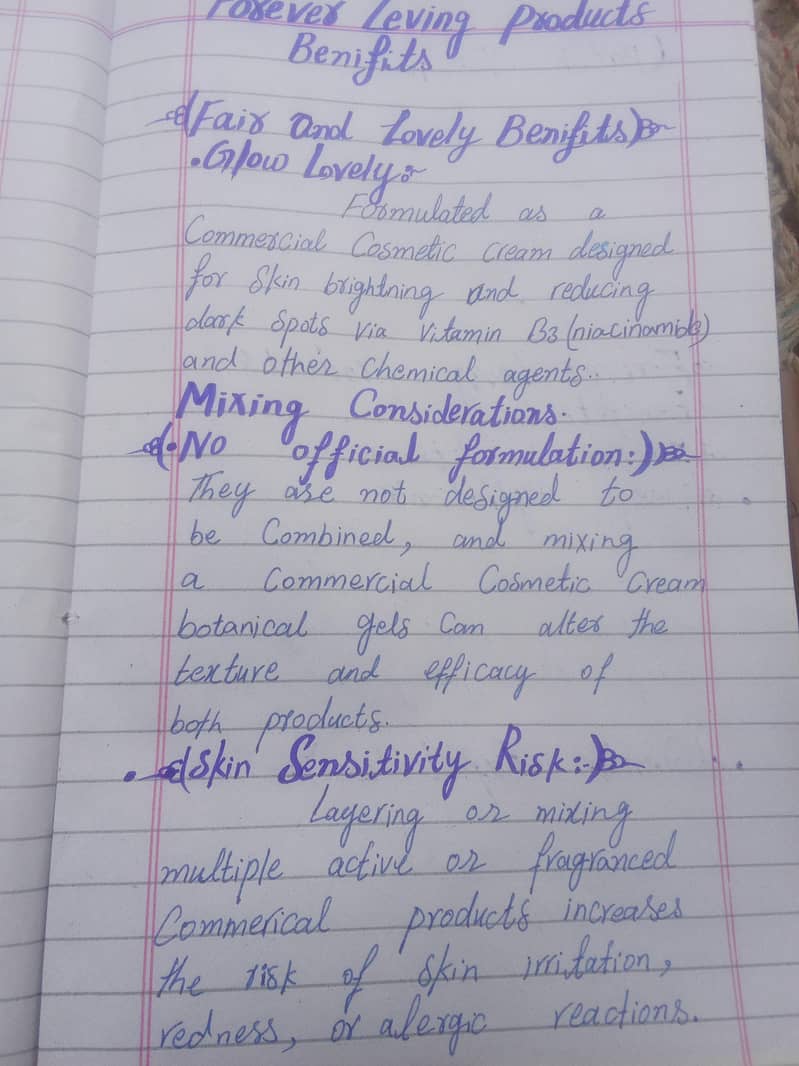 Forever Leving Products
Benifits
(Fair and Lovely Benifits)
• Glow Lovely:-
Formulated as a
Commercial Cosmetic cream designed
for Skin brightning and reducing
dark Spots via Vitamin B3 (niacinamide)
and other Chemical agents..
Mixing Considerations.
(• No official formulation:)
They are not designed to
be Combined, and mixing
a Commercial Cosmetic Cream
botanical gels Can alter the
texture and efficacy of
both products.
• (Skin Sensitivity Risk:-)
Layering or mixing
multiple active or fragranced
Commerical products increases
the risk of Skin irritation,
redness, or alergic reactions.